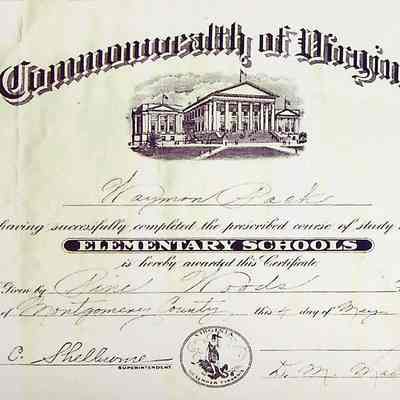 Commonwealth of Virgin
Waymon Packs
having successfully completed the prescribed course of study
ELEMENTARY SCHOOLS
is hereby awarded this Certificate
Given by Pine Woods
of Montgomery County this 4 day of May
C. Shelburne
SUPERINTENDENT
VIRGINIA
SIC SEMPER TYRANNIS